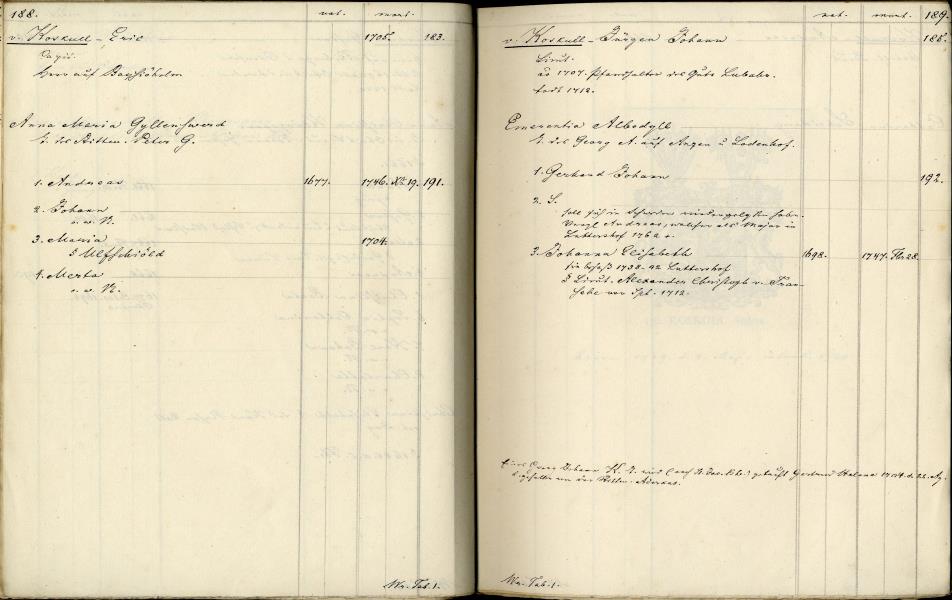 188.
nat. mort.
v. Koskull - Eric 1705. 183.
Capit.
Herr auf
Anna Maria Gyllensward
T. des Rittm. Peter G.
1. Andreas 1677. 1746. Xbr 19. 191.
2. Johann
o. w. N.
3. Maria 1704.
Ulfschiöld
4. Merta
o. w. N.
Wr. Tab. 1.
nat. mort. 189.
v. Koskull - Jürgen Johann 185.
Lieut.
ao 1707. Pfandhalter des Guts
todt 1712.
Emerentia Albedyll
T. des Georg A. auf Angen u Lodenhof.
1. Gerhard Johann 192.
2. S.
soll sich in Schweden niedergelassen haben.
Vergl. Andreas, welcher als Major in
Luttershof 1762
3. Johanna Elisabeth 1698. 1747. Fbr. 28.
sie besaß 1738-42 Luttershof
Lieut. Alexander Christoph v. Tran-
sehe vor Spt. 1712.
Johann K. getauft Gertrud Helena 1704. d. 22. Ag.
Wr. Tab. 1.